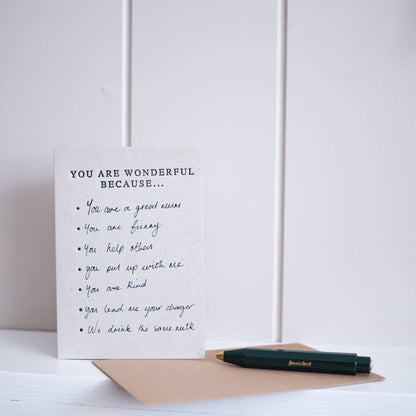 YOU ARE WONDERFUL
BECAUSE...
• You are a great mum
• You are funny
• You help others
• you put up with me
• You are kind
• you lend me your charger
• We drink the same milk